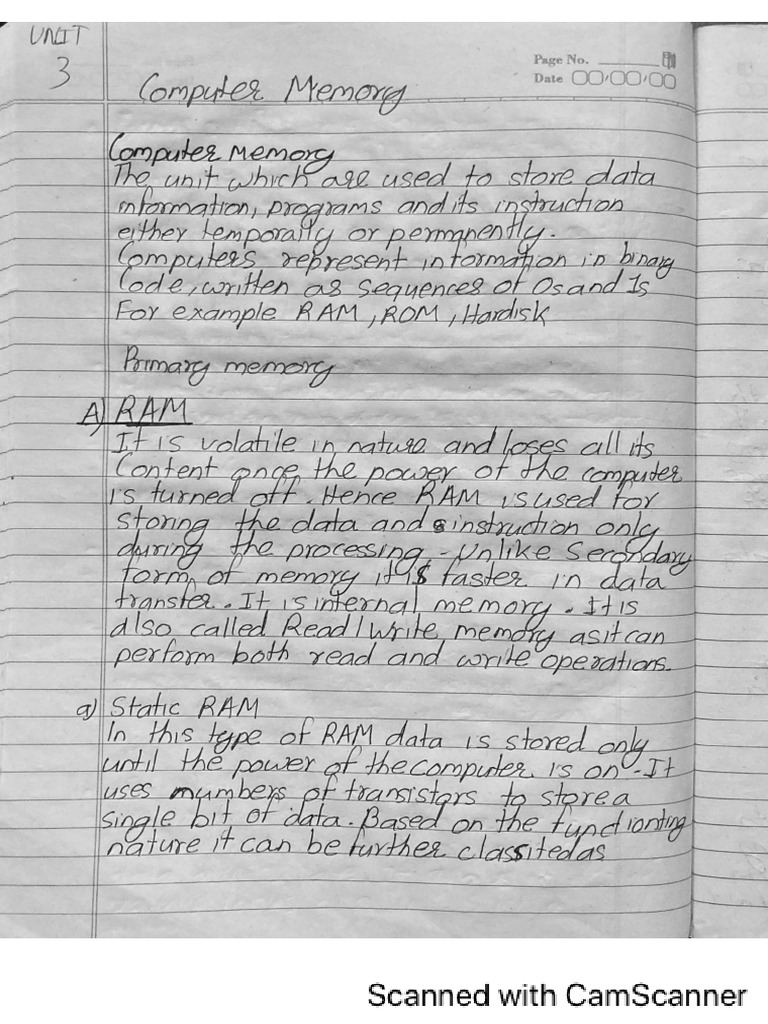 UNIT
3
Page No.
Date
Computer Memory
Computer Memory
The unit which are used to store data
information, programs and its instruction
either temporarily or permanently.
Computers represent information in binary
Code, written as sequences of 0s and 1s
For example RAM, ROM, Hardisk
Primary memory
A) RAM
It is volatile in nature and loses all its
Content once the power of the computer
is turned off. Hence RAM is used for
storing the data and instruction only
during the processing. Unlike Secondary
form of memory it is faster in data
transfer. It is internal memory. It is
also called Read/Write memory as it can
perform both read and write operations.
a) Static RAM
In this type of RAM data is stored only
until the power of the computer is on. It
uses numbers of transistors to store a
single bit of data. Based on the functionting
nature it can be further classified as
Scanned with CamScanner